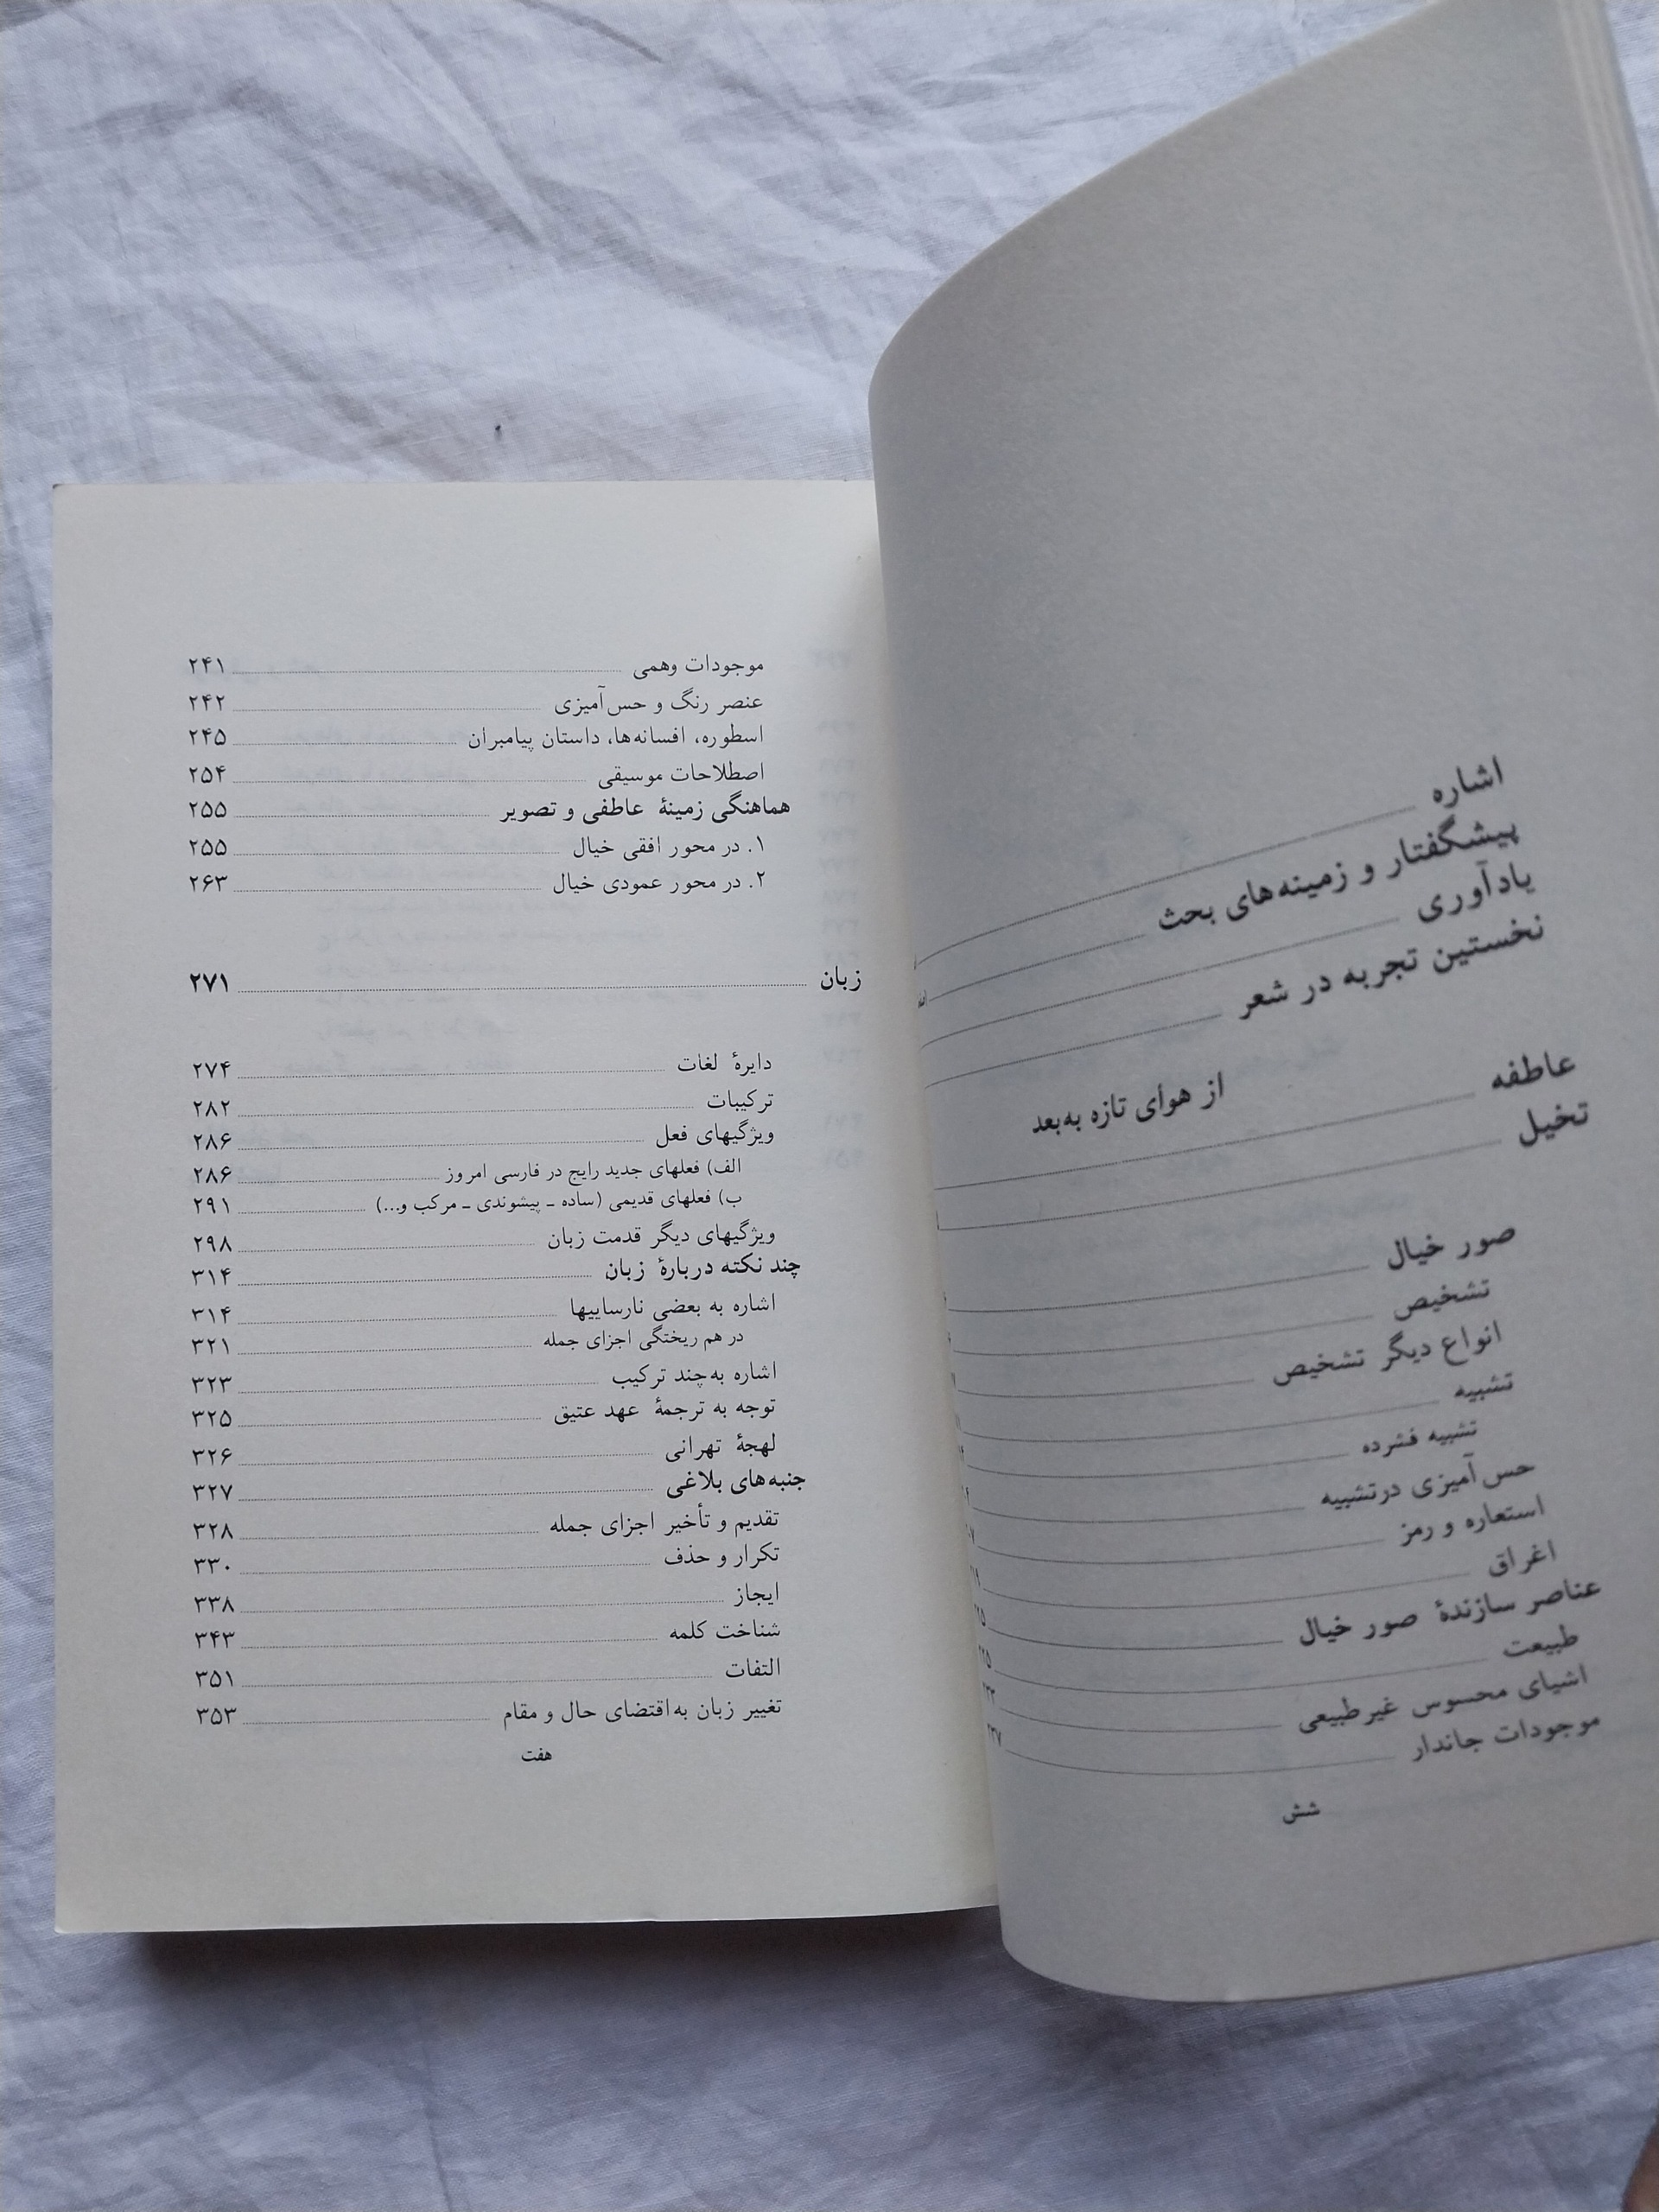 اشاره
پیشگفتار و زمینه‌های بحث
یادآوری
نخستین تجربه در شعر
از هوای تازه به‌بعد
عاطفه
تخیل
صور خیال
تشخیص
انواع دیگر تشخیص
تشبیه
تشبیه فشرده
حس‌آمیزی درتشبیه
استعاره و رمز
اغراق
عناصر سازندهٔ صور خیال
طبیعت
اشیای محسوس غیرطبیعی
موجودات جاندار
شش
موجودات وهمی ۲۴۱
عنصر رنگ و حس‌آمیزی ۲۴۲
اسطوره، افسانه‌ها، داستان پیامبران ۲۴۵
اصطلاحات موسیقی ۲۵۴
هماهنگی زمینهٔ عاطفی و تصویر ۲۵۵
۱. در محور افقی خیال ۲۵۵
۲. در محور عمودی خیال ۲۶۳
زبان ۲۷۱
دایرهٔ لغات ۲۷۴
ترکیبات ۲۸۲
ویژگیهای فعل ۲۸۶
الف) فعلهای جدید رایج در فارسی امروز ۲۸۶
ب) فعلهای قدیمی (ساده ـ پیشوندی ـ مرکب و...) ۲۹۱
ویژگیهای دیگر قدمت زبان ۲۹۸
چند نکته دربارهٔ زبان ۳۱۴
اشاره به بعضی نارساییها ۳۱۴
در هم ریختگی اجزای جمله ۳۲۱
اشاره به‌چند ترکیب ۳۲۳
توجه به ترجمهٔ عهد عتیق ۳۲۵
لهجهٔ تهرانی ۳۲۶
جنبه‌های بلاغی ۳۲۷
تقدیم و تأخیر اجزای جمله ۳۲۸
تکرار و حذف ۳۳۰
ایجاز ۳۳۸
شناخت کلمه ۳۴۳
التفات ۳۵۱
تغییر زبان به‌اقتضای حال و مقام ۳۵۳
هفت